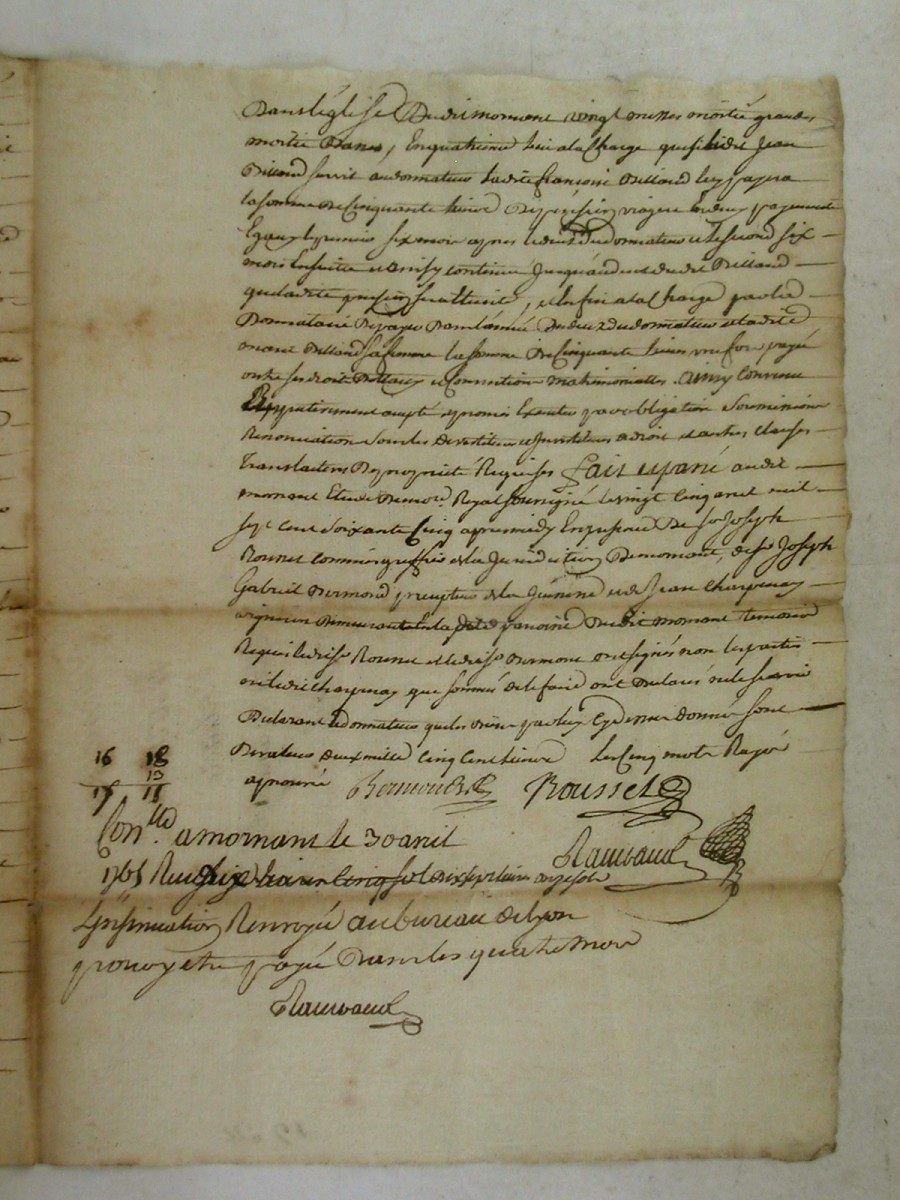 Dans l'église dudit mornant vingt messes moitié grandes
moitié basses, En quatrieme lieu a la Charge que si ledit Jean
Billand survit au donnateur ladite françoise Billand luy payera
la somme de Cinquante livres de pension viagere En deux payements
Egaux le premier six mois apres le deces du donnateur et le second six
mois Ensuitte et ainsy continuer Jusqu'au deces dudit Billand
que ladite pension sera Eteinte, et Enfin a la Charge par la
Donnataire de payer dans l'année du deces du donnateur a ladite
Billand sa femme la somme de Cinquante livres une fois payée
outre ses droits dottaux et Convention matrimonialles. Ainsy Convenu
Respectivement accepté et promis Executer par obligation Soumissions
Renonciation Sous les devestitures et Investitures a droit et autres clauses
Translatives de proprieté Requises fait et passé audit
mornant Etude du no.re Royal soussigné le vingt Cinq avril mil
sept cent Soixante Cinq apres midy En presence de sr Joseph
Rousset commis greffier de la Juridiction de mornant, de sr Joseph
Gabriel Bermond precepteur de la Jeunesse et de Jean Charpenay
vigneron demeurant En la paroisse dudit mornant temoins
Requis ledit sr Rousset et ledit sr Bermond ont signés non les parties
ni ledit Charpenay que sommés de le faire ont declarés ne le scavoir
Declarant le donnateur que les biens par luy Cy dessus donnés sont
De valeur deux mille Cinq Cent livres les Cinq mots Rayés
aprouvé Bermond Rousset
16 18
13
17 11
Con.lle a mornant le 30 avril
1765 Reçu
Insinuation Renvoyée au bureau de Lyon
pour y etre payée Dans les quatre mois